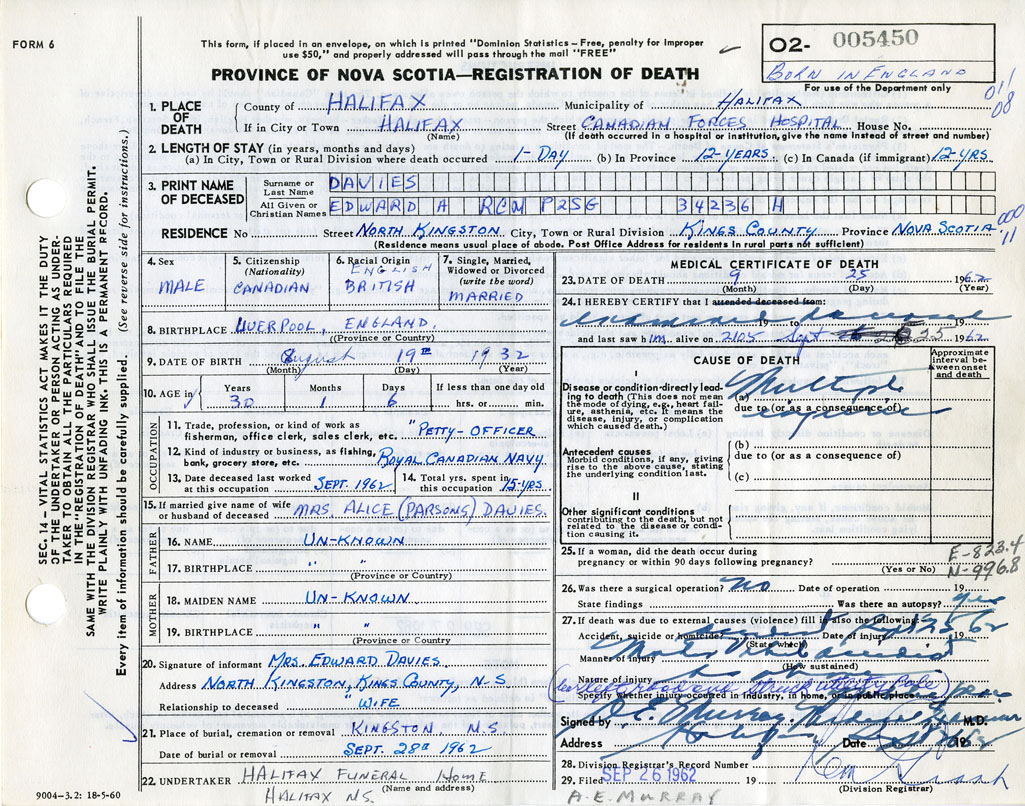 FORM 6
This form, if placed in an envelope, on which is printed "Dominion Statistics – Free, penalty for improper
use $50," and properly addressed will pass through the mail "FREE"
PROVINCE OF NOVA SCOTIA—REGISTRATION OF DEATH
O2- 005450
BORN IN ENGLAND
For use of the Department only
011
08
1. PLACE OF DEATH
County of HALIFAX Municipality of HALIFAX
If in City or Town HALIFAX Street CANADIAN FORCES HOSPITAL House No.
(Name) (If death occurred in a hospital or institution, give the name instead of street and number)
2. LENGTH OF STAY (in years, months and days)
(a) In City, Town or Rural Division where death occurred 1-DAY (b) In Province 12-YEARS (c) In Canada (if immigrant) 12-YRS.
3. PRINT NAME OF DECEASED
Surname or Last Name DAVIES
All Given or Christian Names EDWARD A RCN P2SG 34236 H
RESIDENCE No Street NORTH KINGSTON City, Town or Rural Division KINGS COUNTY Province NOVA SCOTIA
000
11
(Residence means usual place of abode. Post Office Address for residents in rural parts not sufficient)
4. Sex MALE
5. Citizenship (Nationality) CANADIAN
6. Racial Origin ENGLISH BRITISH
7. Single, Married, Widowed or Divorced (write the word) MARRIED
8. BIRTHPLACE LIVERPOOL, ENGLAND.
(Province or Country)
9. DATE OF BIRTH August 19TH 1932
(Month) (Day) (Year)
10. AGE in Years 30 Months 1 Days 6 If less than one day old hrs. or min.
OCCUPATION
11. Trade, profession, or kind of work as fisherman, office clerk, sales clerk, etc. "PETTY-OFFICER
12. Kind of industry or business, as fishing, bank, grocery store, etc. ROYAL CANADIAN NAVY.
13. Date deceased last worked at this occupation SEPT. 1962
14. Total yrs. spent in this occupation 15-YRS.
15. If married give name of wife or husband of deceased MRS. ALICE (PARSONS) DAVIES.
FATHER
16. NAME UN-KNOWN
17. BIRTHPLACE " "
(Province or Country)
MOTHER
18. MAIDEN NAME UN-KNOWN
19. BIRTHPLACE " "
(Province or Country
20. Signature of informant MRS. EDWARD DAVIES
Address NORTH KINGSTON, KINGS COUNTY, N-S
Relationship to deceased " WIFE
21. Place of burial, cremation or removal KINGSTON, N.S
Date of burial or removal SEPT. 28th 1962
22. UNDERTAKER HALIFAX FUNERAL HOME
(Name and address)
HALIFAX NS.
9004-3.2: 18-5-60
MEDICAL CERTIFICATE OF DEATH
23. DATE OF DEATH 9 25 1962
(Month) (Day) (Year)
24. I HEREBY CERTIFY that I attended deceased from:
examined deceased
19 to 19
and last saw him alive on 2105 Sept 25 1962
CAUSE OF DEATH
Approximate interval between onset and death
I
Disease or condition directly leading to death (This does not mean the mode of dying, e.g., heart failure, asthenia, etc. It means the disease, injury, or complication which caused death.)
(a) Multiple injuries
due to (or as a consequence of)
Antecedent causes
Morbid conditions, if any, giving rise to the above cause, stating the underlying condition last.
(b)
due to (or as a consequence of)
(c)
II
Other significant conditions contributing to the death, but not related to the disease or condition causing it.
25. If a woman, did the death occur during pregnancy or within 90 days following pregnancy?
(Yes or No)
E-823.4
N-996.8
26. Was there a surgical operation? No Date of operation 19
State findings Was there an autopsy? yes
27. If death was due to external causes (violence) fill in also the following:
Accident, suicide or homicide? accident Date of injury Sept 25 1962
(State which)
Manner of injury Motor Vehicle accident
(How sustained)
Nature of injury
Specify whether injury occurred in industry, in home, or in public place
Signed by A. E. Murray M.D.
Address Halifax Date 19
28. Division Registrar's Record Number
29. Filed SEP 26 1962 19
(Division Registrar)
A.E. MURRAY
SEC. 14 – VITAL STATISTICS ACT MAKES IT THE DUTY
OF THE UNDERTAKER OR PERSON ACTING AS UNDER-
TAKER TO OBTAIN ALL THE PARTICULARS REQUIRED
IN THE "REGISTRATION OF DEATH" AND TO FILE THE
SAME WITH THE DIVISION REGISTRAR WHO SHALL ISSUE THE BURIAL PERMIT.
WRITE PLAINLY WITH UNFADING INK. THIS IS A PERMANENT RECORD.
Every item of information should be carefully supplied. (See reverse side for instructions.)